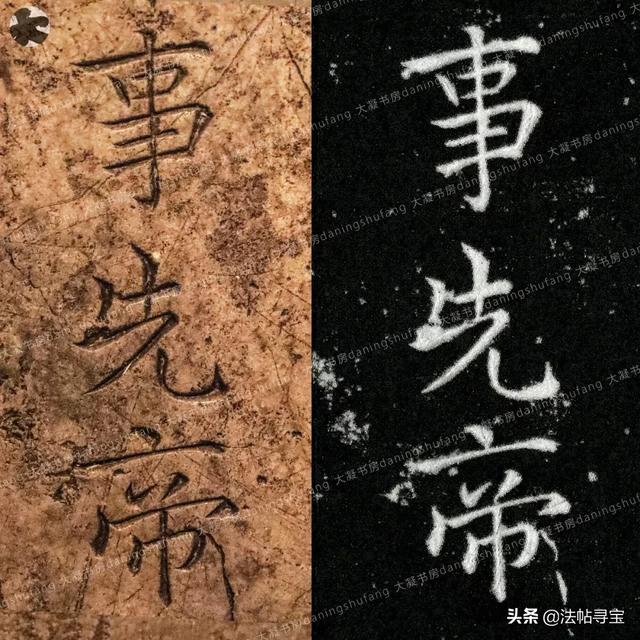 事先帝
事先帝
大凝书房daningshufang
头条 @法帖寻宝